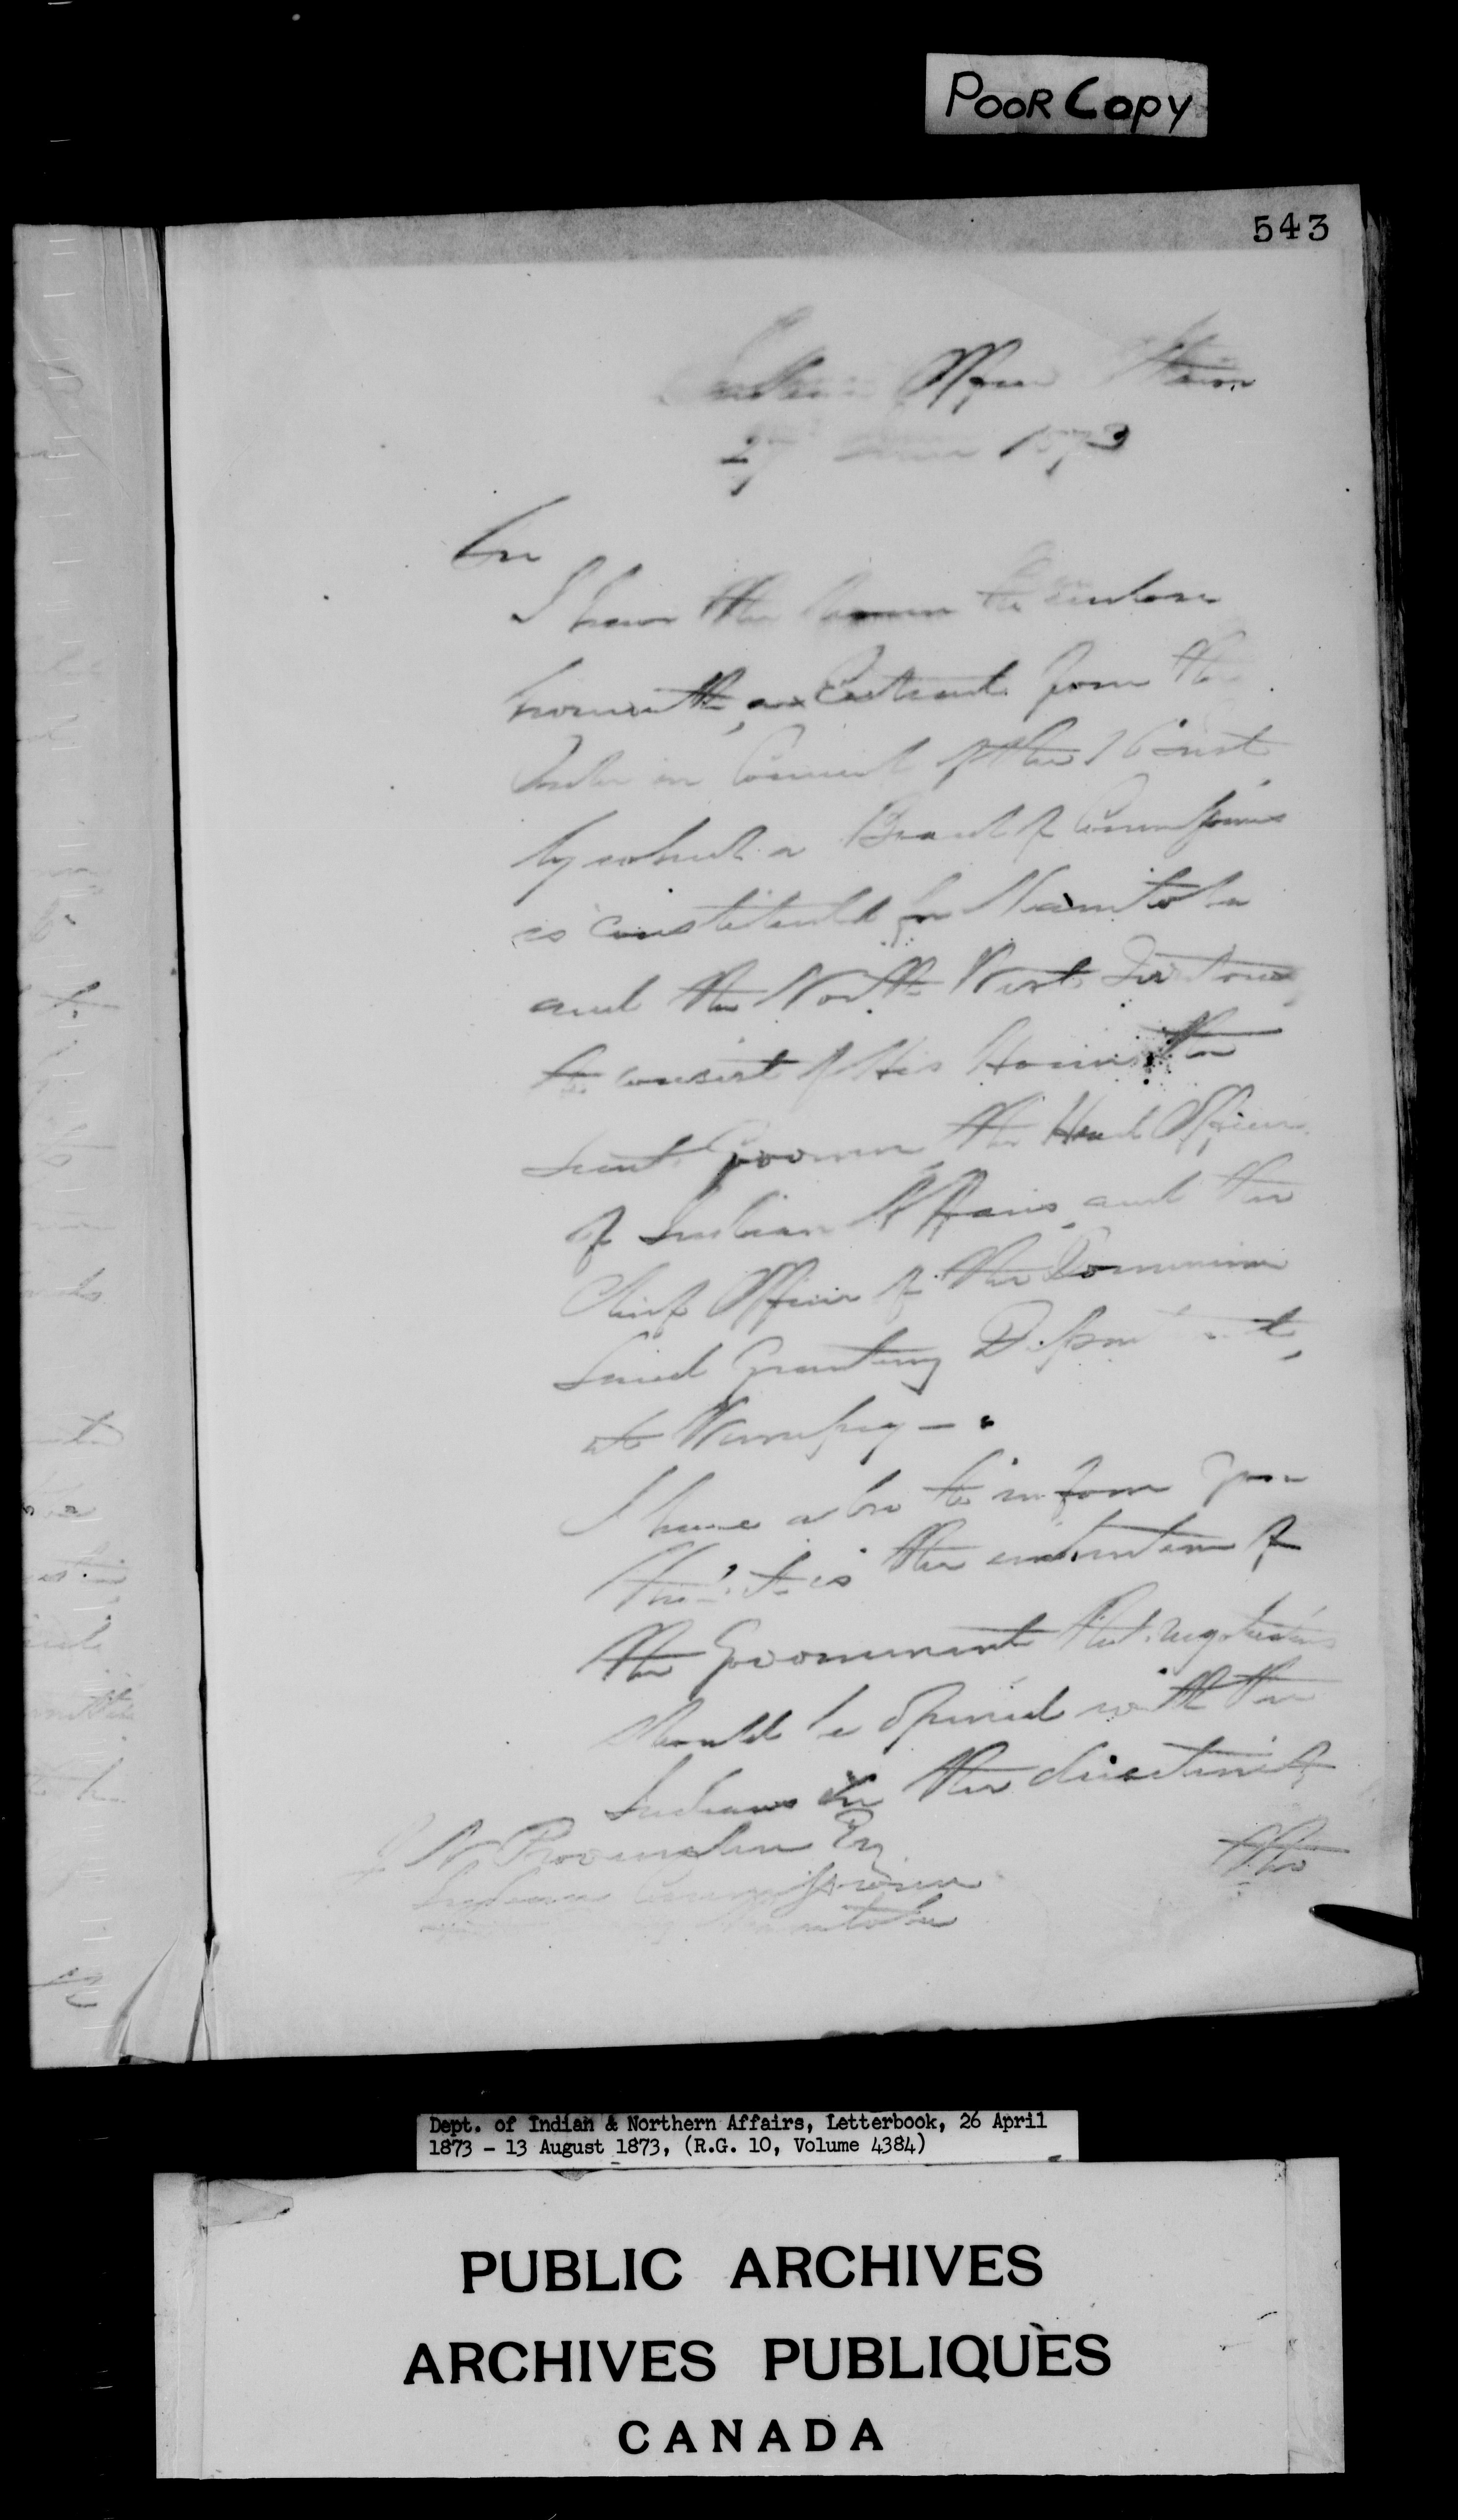 POOR COPY
543
Indian Office Ottawa
27 June 1873
Sir
I have the honor to enclose
herewith, an Extract from the
Order in Council of the 16 inst
by which a Board of Commissioners
is constituted for Manitoba
and the North West Territories
to consist of His Honor the
Lieut. Governor, the Head Officer
of Indian Affairs, and the
Chief Officer of the Dominion
Land Granting Department,
at Winnipeg -
I have also to inform you
that it is the intention of
the Government that negotiations
should be opened with the
Indians in the
the
J N Provencher Esq
Indian Commissioner
Manitoba
Dept. of Indian & Northern Affairs, Letterbook, 26 April
1873 - 13 August 1873, (R.G. 10, Volume 4384)
PUBLIC ARCHIVES
ARCHIVES PUBLIQUES
CANADA